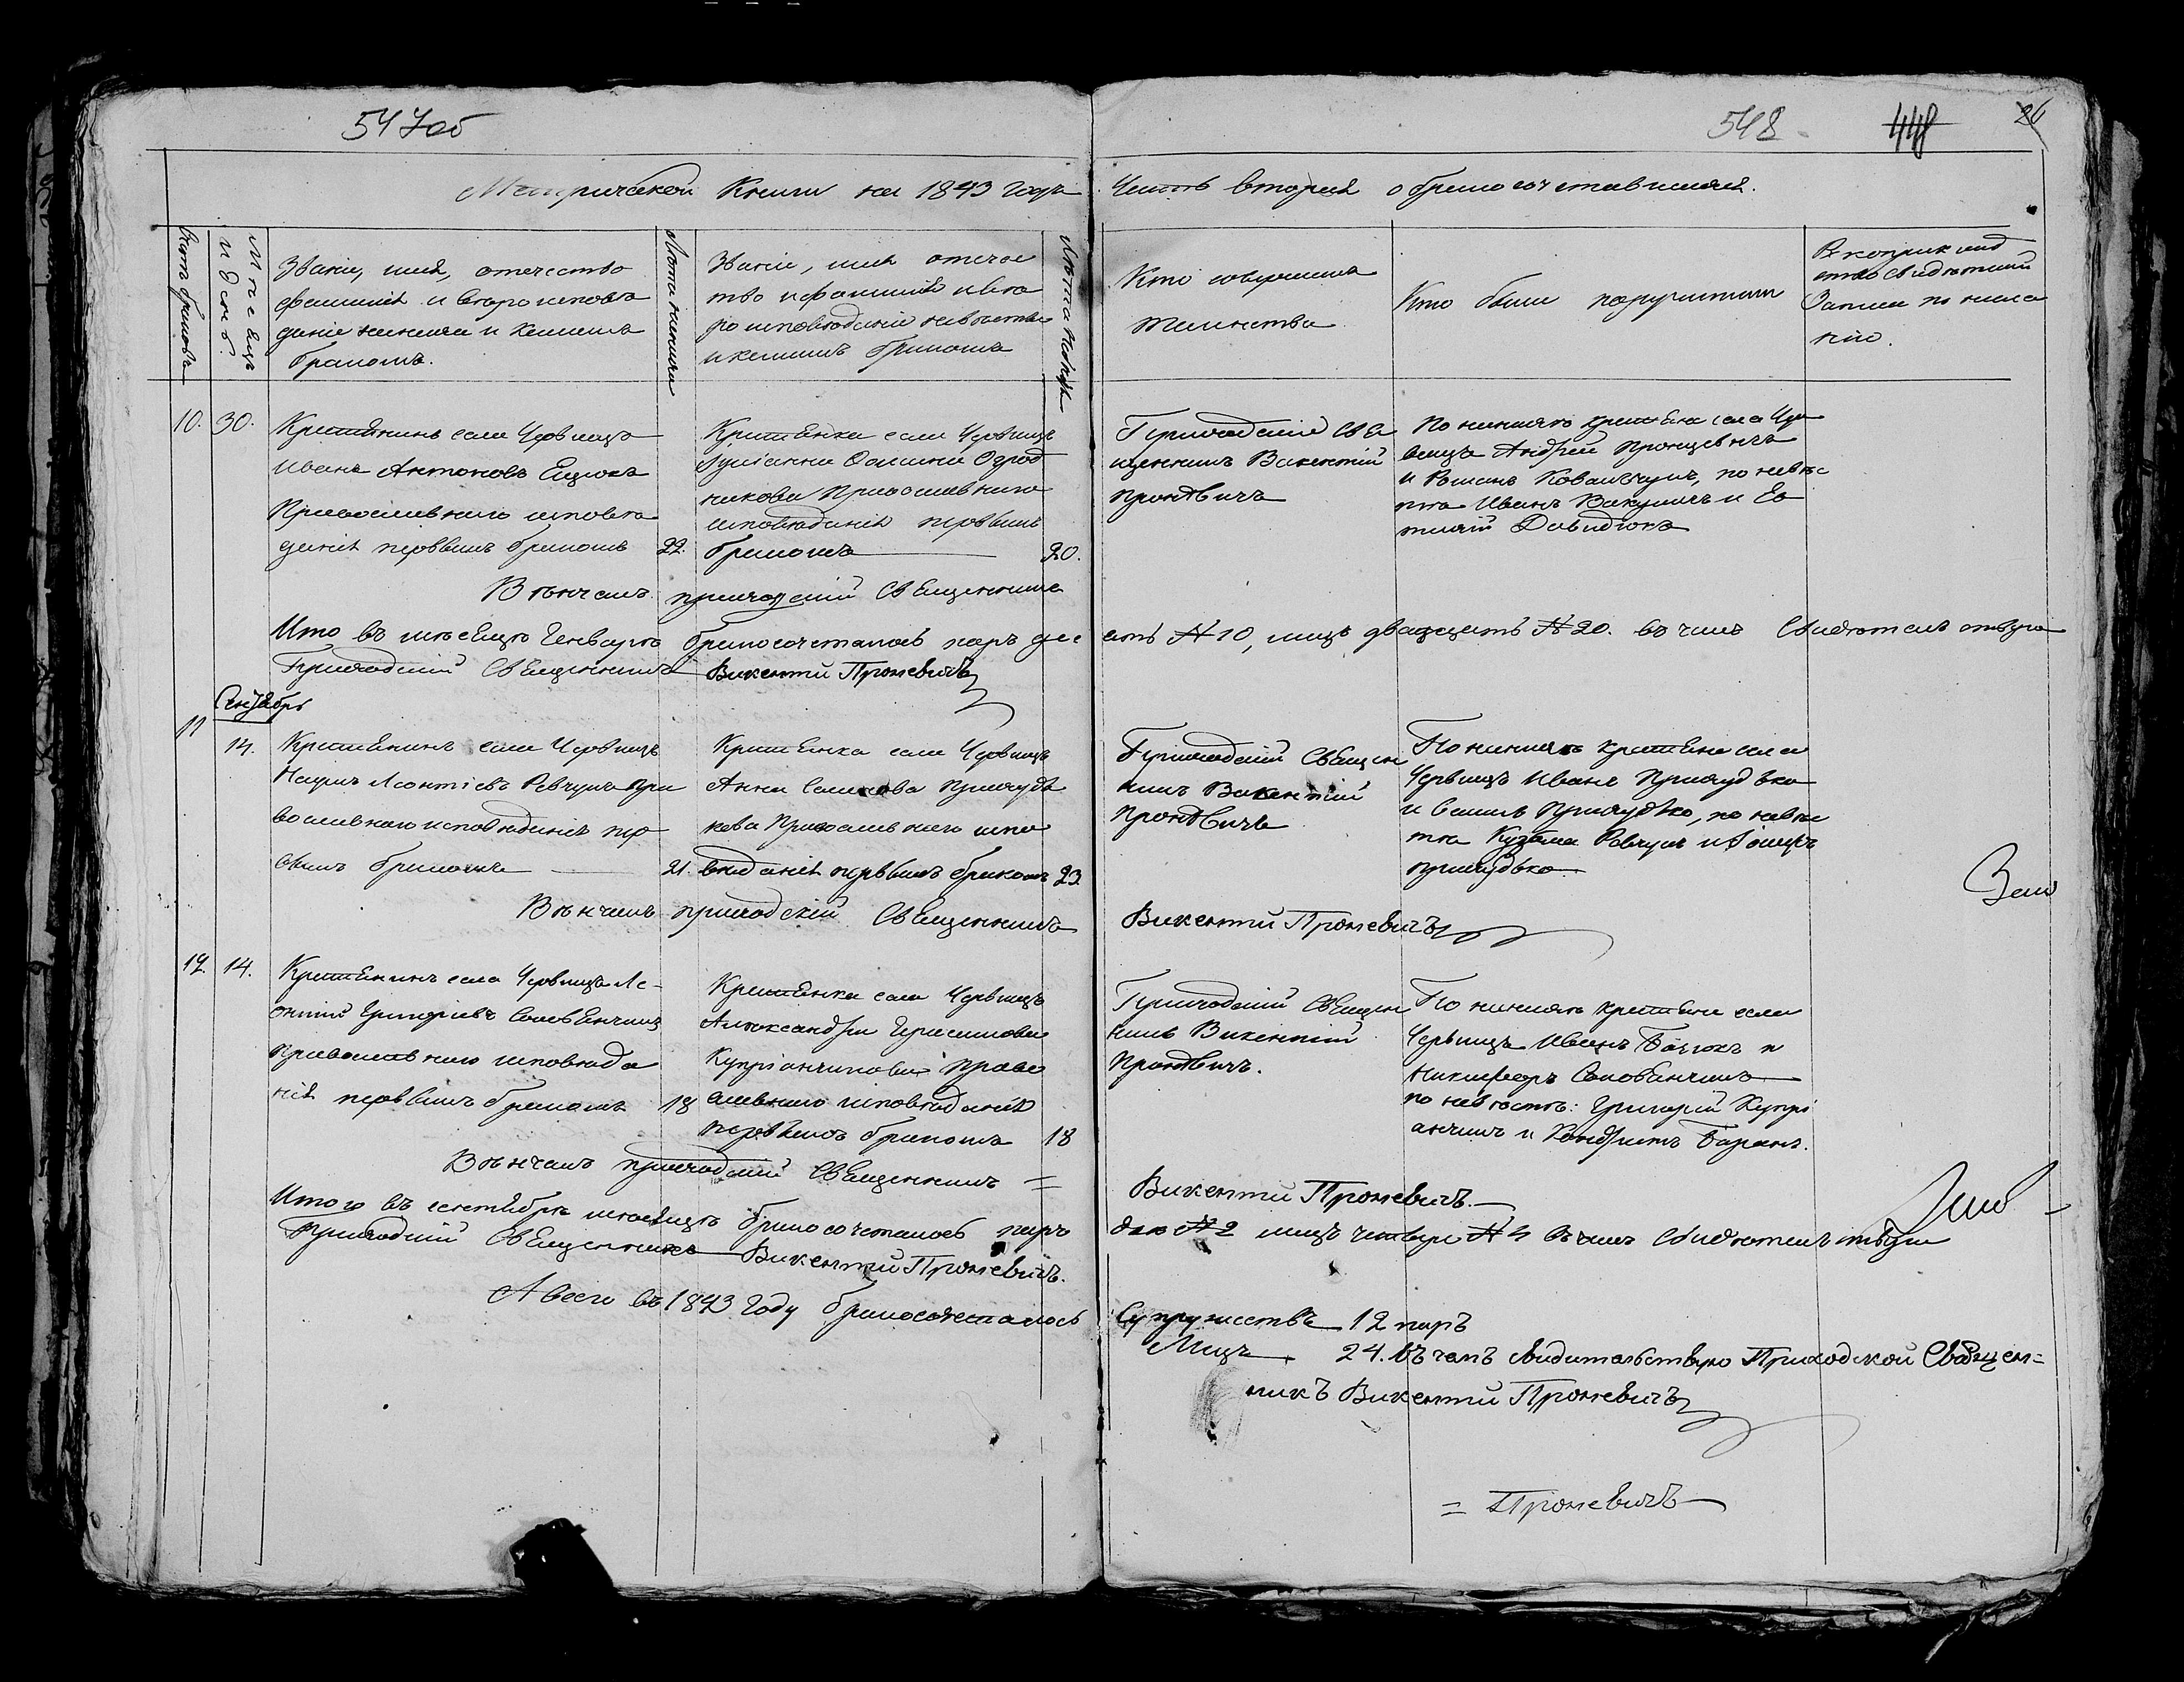 547об
548
448
26
Метрической Книги на 1843 годъ Часть вторая о бракосочетавшихся.
Счетъ браковъ
Мѣсяцъ и день.
Званіе, имя, отечество
фамилія и вѣроисповѣ
даніе жениха и коимъ
бракомъ.
Лѣта жениха
Званіе, имя отечес
тво и фамилія и вѣ
роисповѣданіе невѣсты
и коимъ бракомъ
Лѣта невѣсты
Кто совершалъ
таинство
Кто были поручители
свидѣтелей
Записи по жела
нію.
10. 30.
Крестянинъ села Червищъ
Иванъ Антоновъ Ецюкъ
Православнаго исповѣ
данія первымъ бракомъ 22.
Крестянка села Червищъ
Огрод
никова Православнаго
исповѣданія первымъ
бракомъ 20.
Приходскій Свя
щенникъ Викентій
Проневичъ
По женихѣ крестяне села Чер
вищъ Андрей Проневичъ
и Романъ Ковальчукъ, по невѣс
тѣ Иванъ Вакуличъ и Ев
тихій Давидюкъ
Вѣнчалъ приходскій Священникъ
Итого въ мѣсяцѣ Генварѣ бракосочеталось паръ дес ять № 10, лицъ двадцать № 20. въ чемъ Свидѣтельствую
Приходскій Священникъ Викентій Проневичъ
Сентябрь
11 14.
Крестянинъ села Червищъ
Наумъ Леонтіевъ Ревчукъ Пра
вославнаго исповѣданія пер
вымъ бракомъ 21.
Крестянка села Червищъ
Анна Семенова Приходь
кова Православнаго испо
вѣданія первымъ бракомъ 23
Приходскій Священ
никъ Викентій
Проневичъ
По женихѣ крестяне села
Червищъ Иванъ Приходько
и Василь Приходько, по невѣс
тѣ Кузьма Ревчукъ и
Приходько
Вѣнчалъ приходскій Священникъ
Викентій Проневичъ
12. 14.
Крестянинъ села Червищъ Ле-
онтій Григоріевъ Соловянчикъ
Православнаго исповѣда
нія первымъ бракомъ 18
Крестянка села Червищъ
Александра Герасимова
Купріанчикова Право
славнаго исповѣданія
первымъ бракомъ 18
Приходскій Священ
никъ Викентій
Проневичъ.
По женихѣ крестяне села
Червищъ Иванъ и
Никифоръ Соловянчикъ
по невѣстѣ: Григорій Купрі
анчикъ и Кондратъ Баранъ.
Вѣнчалъ приходскій Священникъ =
Викентій Проневичъ.
Итого въ сентябрѣ мѣсяцѣ бракосочеталось паръ
двѣ № 2 лицъ четыри № 4 въ чемъ Свидѣтельствую
Приходскій Священникъ Викентій Проневичъ.
А всего въ 1843 году бракосочеталось
Супружествъ 12 паръ
Лицъ 24. въ чемъ свидительствую Приходской Священ=
никъ Викентій Проневичъ
= Проневичъ